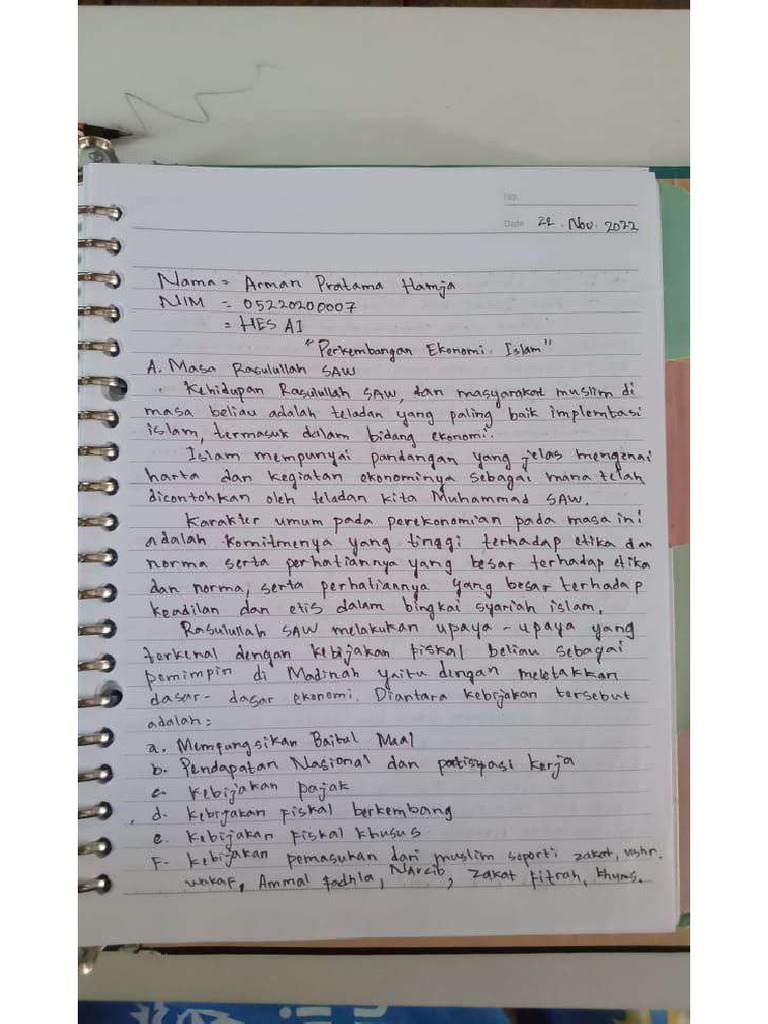 No:
Date 22. Nov. 2022
Nama = Arman Pratama Hamja
NIM = 05220200007
= HES A1
"Perkembangan Ekonomi Islam"
A. Masa Rasulullah SAW
Kehidupan Rasulullah SAW, dan masyarakat muslim di
masa beliau adalah teladan yang paling baik implembasi
islam, termasuk dalam bidang ekonomi.
Islam mempunyai pandangan yang jelas mengenai
harta dan kegiatan ekonominya sebagai mana telah
dicontohkan oleh teladan kita Muhammad SAW.
Karakter umum pada perekonomian pada masa ini
adalah komitmenya yang tinggi terhadap etika dan
norma serta perhatiannya yang besar terhadap etika
dan norma, serta perhatiannya yang besar terhadap
keadilan dan etis dalam bingkai syariah islam.
Rasulullah SAW melakukan upaya-upaya yang
terkenal dengan kebijakan fiskal beliau sebagai
pemimpin di Madinah yaitu dengan meletakkan
dasar-dasar ekonomi. Diantara kebijakan tersebut
adalah:
a. Memfungsikan Baitul Maal
b. Pendapatan Nasional dan patisipasi kerja
c. kebijakan pajak
d. kebijakan fiskal berkembang
e. kebijakan fiskal khusus
F. kebijakan pemasukan dari muslim seperti zakat, ushr.
wakaf, Ammal fadhla, zakat fitrah, khums.